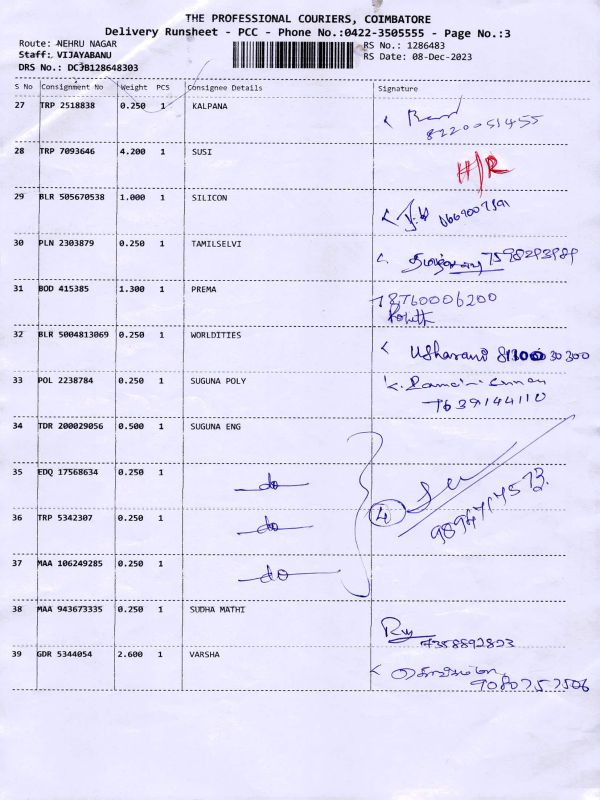 THE PROFESSIONAL COURIERS, COIMBATORE
Delivery Runsheet - PCC - Phone No.:0422-3505555 - Page No.:3
Route: NEHRU NAGAR RS No.: 1286483
Staff: VIJAYABANU RS Date: 08-Dec-2023
DRS No.: DCJB128648303
S No Consignment No Weight PCS Consignee Details Signature
27 TRP 2518838 0.250 1 KALPANA
8220051455
28 TRP 7093646 4.200 1 SUSI
H/R
29 BLR 505670538 1.000 1 SILICON
30 PLN 2303879 0.250 1 TAMILSELVI
31 BOD 415385 1.300 1 PREMA
8760006200
32 BLR 5004813069 0.250 1 WORLDITIES
Usharani
33 POL 2238784 0.250 1 SUGUNA POLY
7639144110
34 TDR 200029056 0.500 1 SUGUNA ENG
35 EDQ 17568634 0.250 1 do
36 TRP 5342307 0.250 1 do 4
37 MAA 106249285 0.250 1 do
38 MAA 943673335 0.250 1 SUDHA MATHI
39 GDR 5344054 2.600 1 VARSHA
9080757506